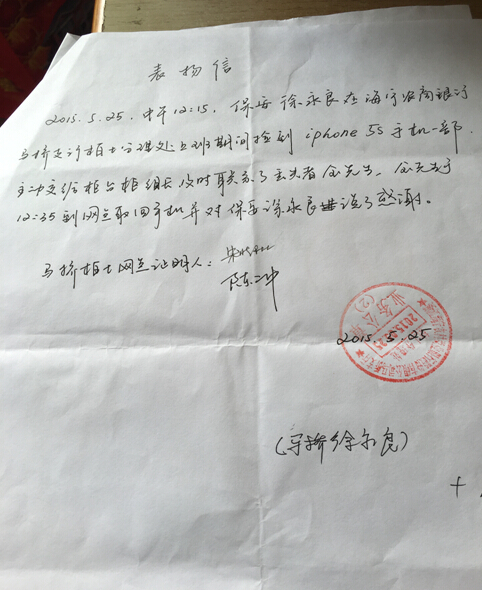 表扬信
2015.5.25.中午12:15,保安徐永良在海宁农商银行
马桥支行柏士分理处上班期间捡到iphone 5s手机一部.
主动交给柜台柜组长及时联系了丢失者余先生,余先生于
12:35到网点取回手机并对保安徐永良进说了感谢。
马桥柏士网点证明人:
陈
2015.5.25
业务公章
(2)
2015.5.25
(马桥徐永良)
十